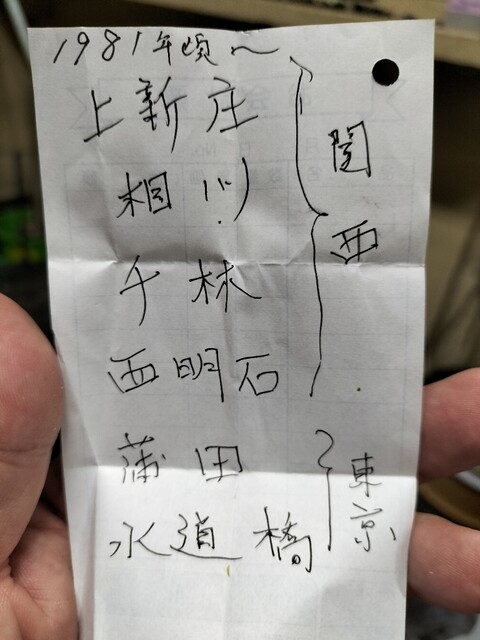 1981年頃〜
上新庄
相川
千林
西明石
関西
蒲田
水道橋
東京